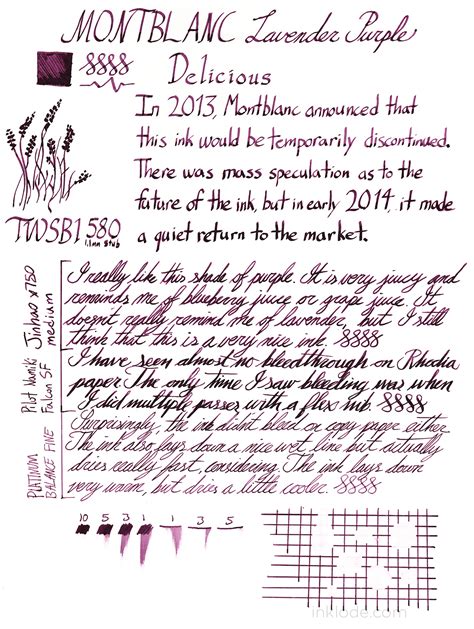 MONTBLANC Lavender Purple
Delicious
In 2013, Montblanc announced that
this ink would be temporarily discontinued.
There was mass speculation as to the
future of the ink, but in early 2014, it made
a quiet return to the market.
TWSBI 580
1.1mm Stub
Jinhao x750
medium
I really like this shade of purple. It is very juicy and
reminds me of blueberry juice or grape juice. It
doesn't really remind me of lavender, but I still
think that this is a very nice ink.
Pilot Namiki
Falcon SF
I have seen almost no bleedthrough on Rhodia
paper. The only time I saw bleeding was when
I did multiple passes with a flex nib.
PLATINUM
BALANCE FINE
Surprisingly, the ink didn't bleed on copy paper either.
The ink also lays down a nice wet line but actually
dries really fast, considering. The ink lays down
very warm, but dries a little cooler.
10 5 3 1 1 3 5
inklode.com